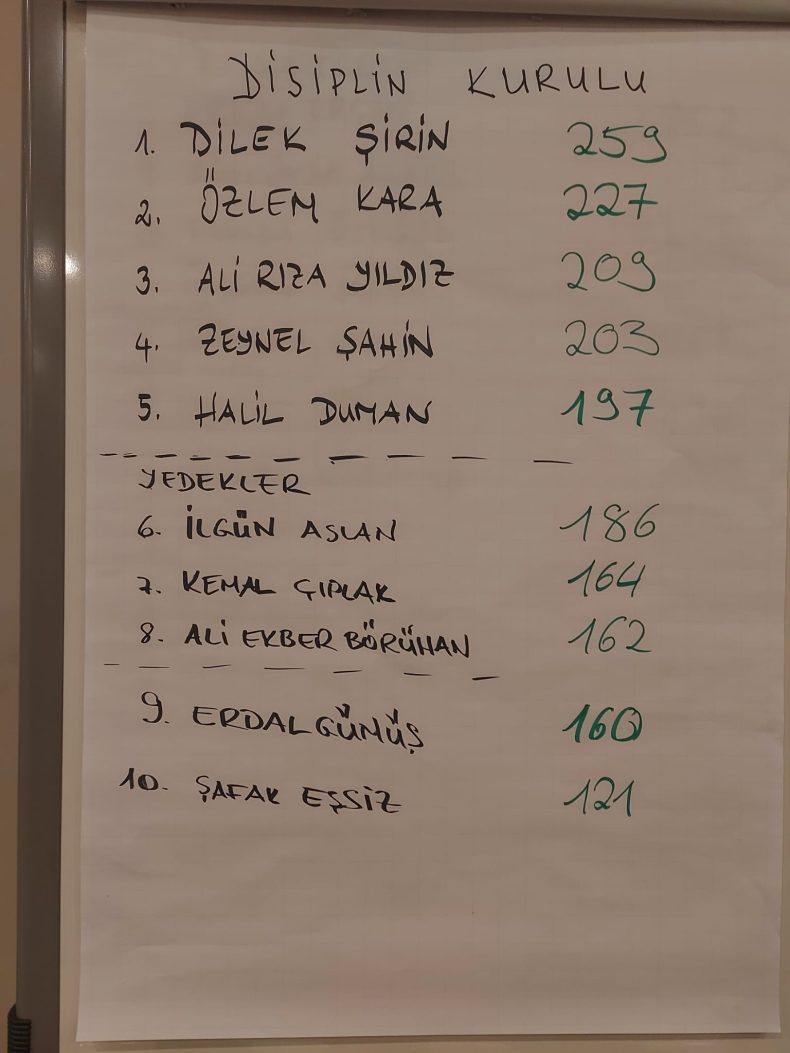 DİSİPLİN KURULU
1. DİLEK ŞİRİN 259
2. ÖZLEM KARA 227
3. ALİ RIZA YILDIZ 209
4. ZEYNEL ŞAHİN 203
5. HALİL DUMAN 197
YEDEKLER
6. İLGÜN ASLAN 186
7. KEMAL ÇIPLAK 164
8. ALİ EKBER BÖRÜHAN 162
9. ERDAL GÜMÜŞ 160
10. ŞAFAK EŞSİZ 121